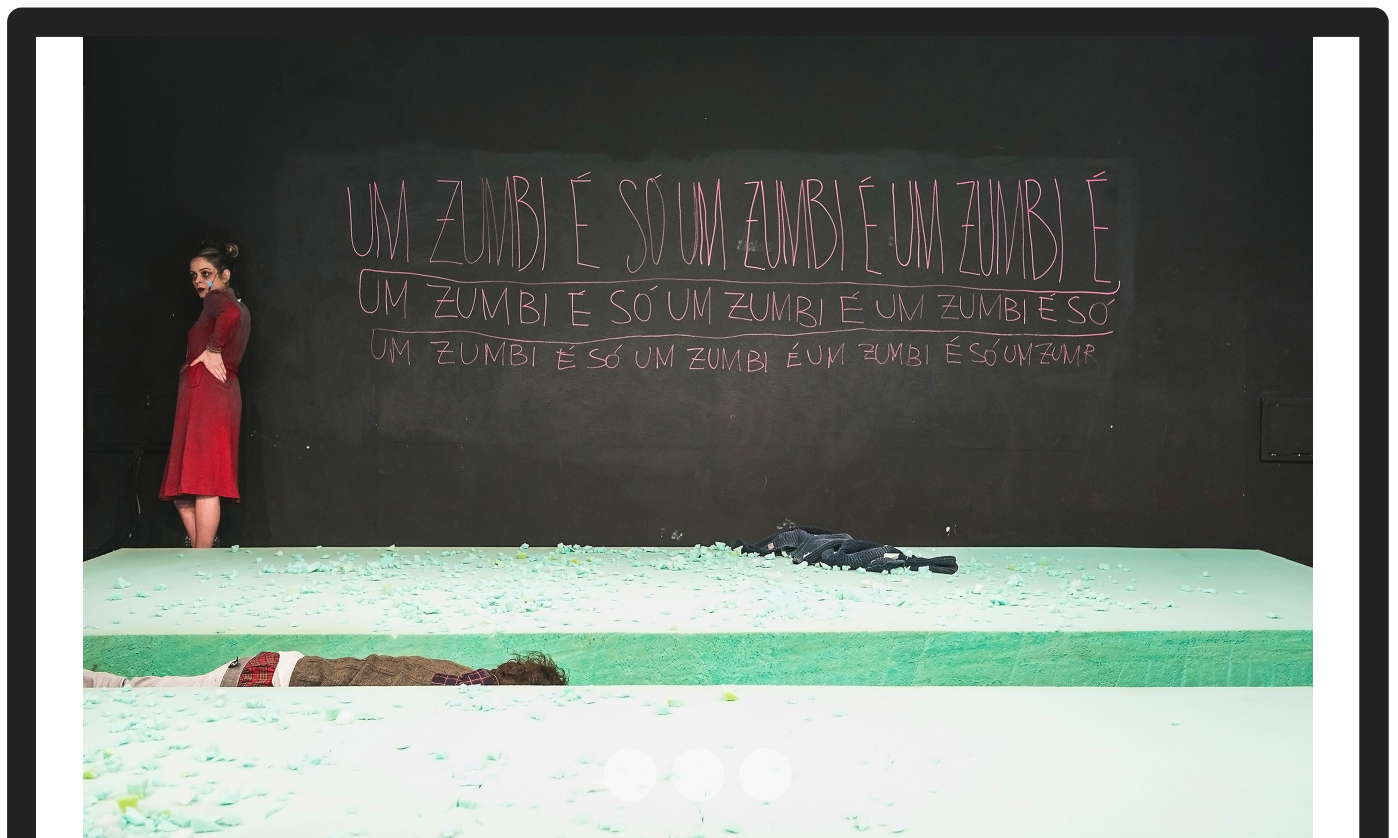 UM ZUMBI É SÓ UM ZUMBI É UM ZUMBI É
UM ZUMBI É SÓ UM ZUMBI É UM ZUMBI É SÓ
UM ZUMBI É SÓ UM ZUMBI É UM ZUMBI É SÓ UM ZUMB